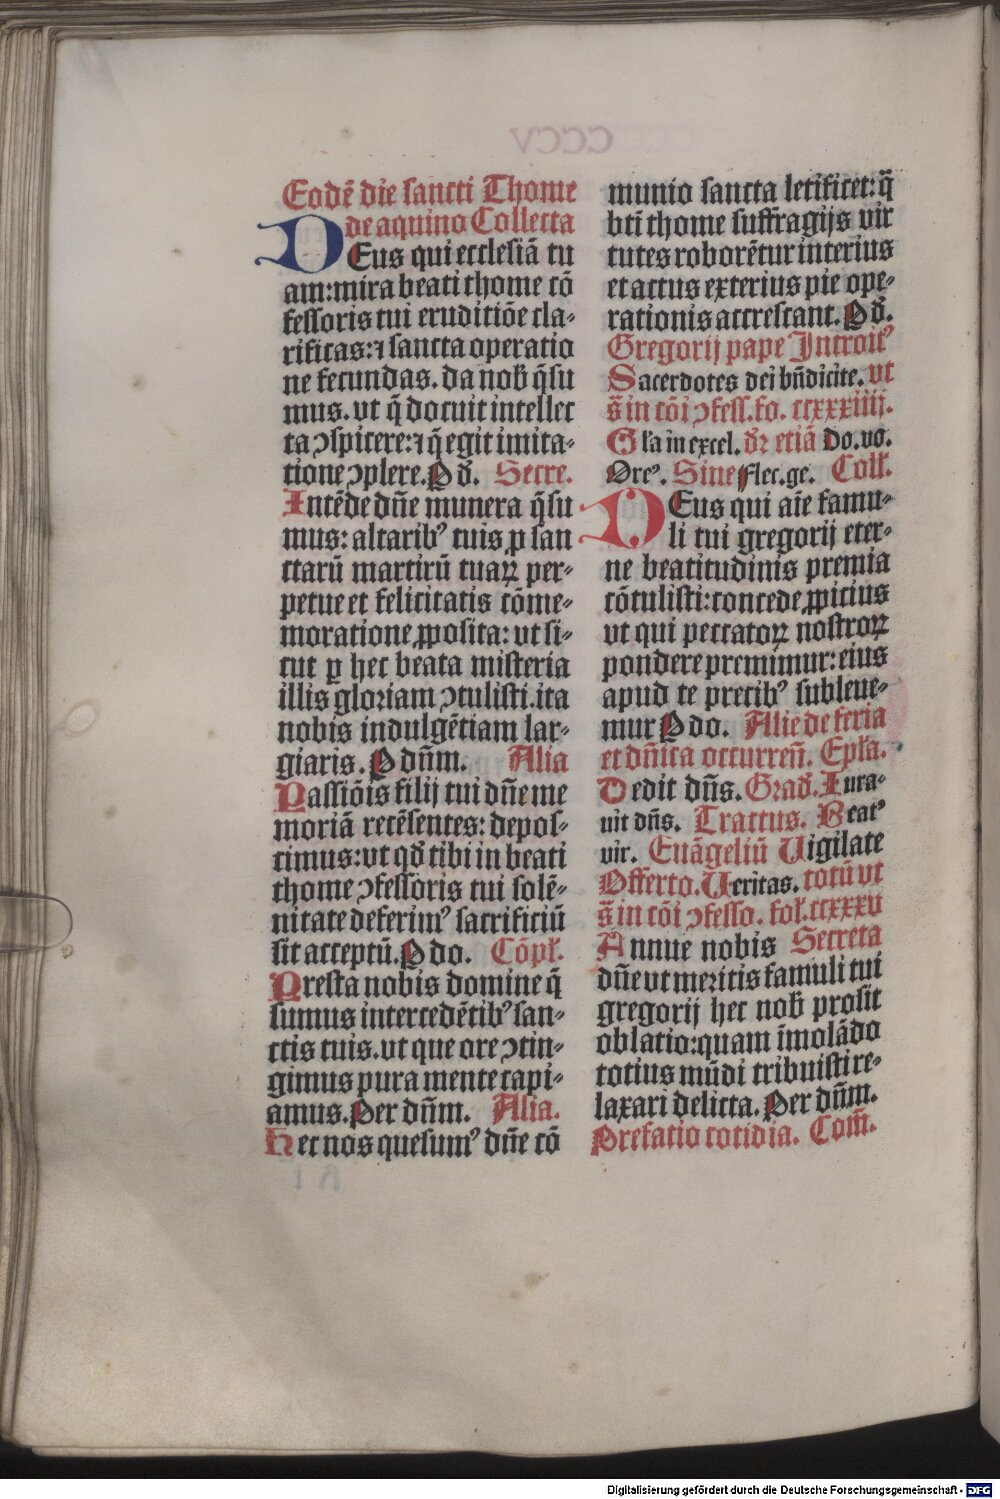 Eodē die sancti Thome
de aquino Collecta
DEus qui ecclesiā tu
am: mira beati thome cō
fessoris tui eruditiōe cla⸗
rificas: ⁊ sancta operatio
ne fecundas. da nob̄ q̄su
mus. vt q̄ docuit intellec
ta ꝯspicere: ⁊ q̄ egit imita⸗
tione ꝯplere. P d̄. Secre.
Intēde dn̄e munera q̄su
mus: altaribꝰ tuis ꝓ san
ctarū martirū tuaꝝ per⸗
petue et felicitatis cōme⸗
moratione ꝓposita: vt si⸗
cut ꝑ hec beata misteria
illis gloriam ꝯtulisti. ita
nobis indulgētiam lar⸗
giaris. P dn̄m. Alia
Passiōis filij tui dn̄e me
moriā recēsentes: depos⸗
cimus: vt qd̄ tibi in beati
thome ꝯfessoris tui solē⸗
nitate deferimꝰ sacrificiū
sit acceptū. P do. Cōpl̄.
Presta nobis domine q̄
sumus intercedētibꝰ san⸗
ctis tuis. vt que ore ꝯtin⸗
gimus pura mente capi⸗
amus. Per dn̄m. Alia.
Hec nos quesumꝰ dn̄e cō
munio sancta letificet: q̄
bti̅ thome suffragijs vir
tutes roborētur interius
et actus exterius pie ope⸗
rationis accrescant. P d̄.
Gregorij pape Introitꝰ
Sacerdotes dei bn̄dicite. vt
s̄ in cōi ꝯfess. fo. ccxxxiiij.
Gl̄a in excel. dr̄ etiā Do. vo.
Oreꝰ. Sine Flec. ge. Coll̄.
DEus qui aīe famu⸗
li tui gregorij eter⸗
ne beatitudinis premia
cōtulisti: concede ꝓpicius
vt qui peccatoꝝ nostroꝝ
pondere premimur: eius
apud te precibꝰ subleue⸗
mur P do. Alie de feria
et dn̄ica occurren̄. Epl̄a.
Dedit dn̄s. Grad̄. Iura⸗
uit dn̄s. Tractus. Beatꝰ
vir. Euāgeliū Uigilate
Offerto. Ueritas. totū vt
s̄ in cōi ꝯfesso. fol̄. ccxxxv
Annue nobis Secreta
dn̄e vt meritis famuli tui
gregorij hec nob̄ prosit
oblatio: quam īmolādo
totius mūdi tribuisti re⸗
laxari delicta. Per dn̄m.
Prefatio cotidia. Com̄.
Digitalisierung gefördert durch die Deutsche Forschungsgemeinschaft - DFG